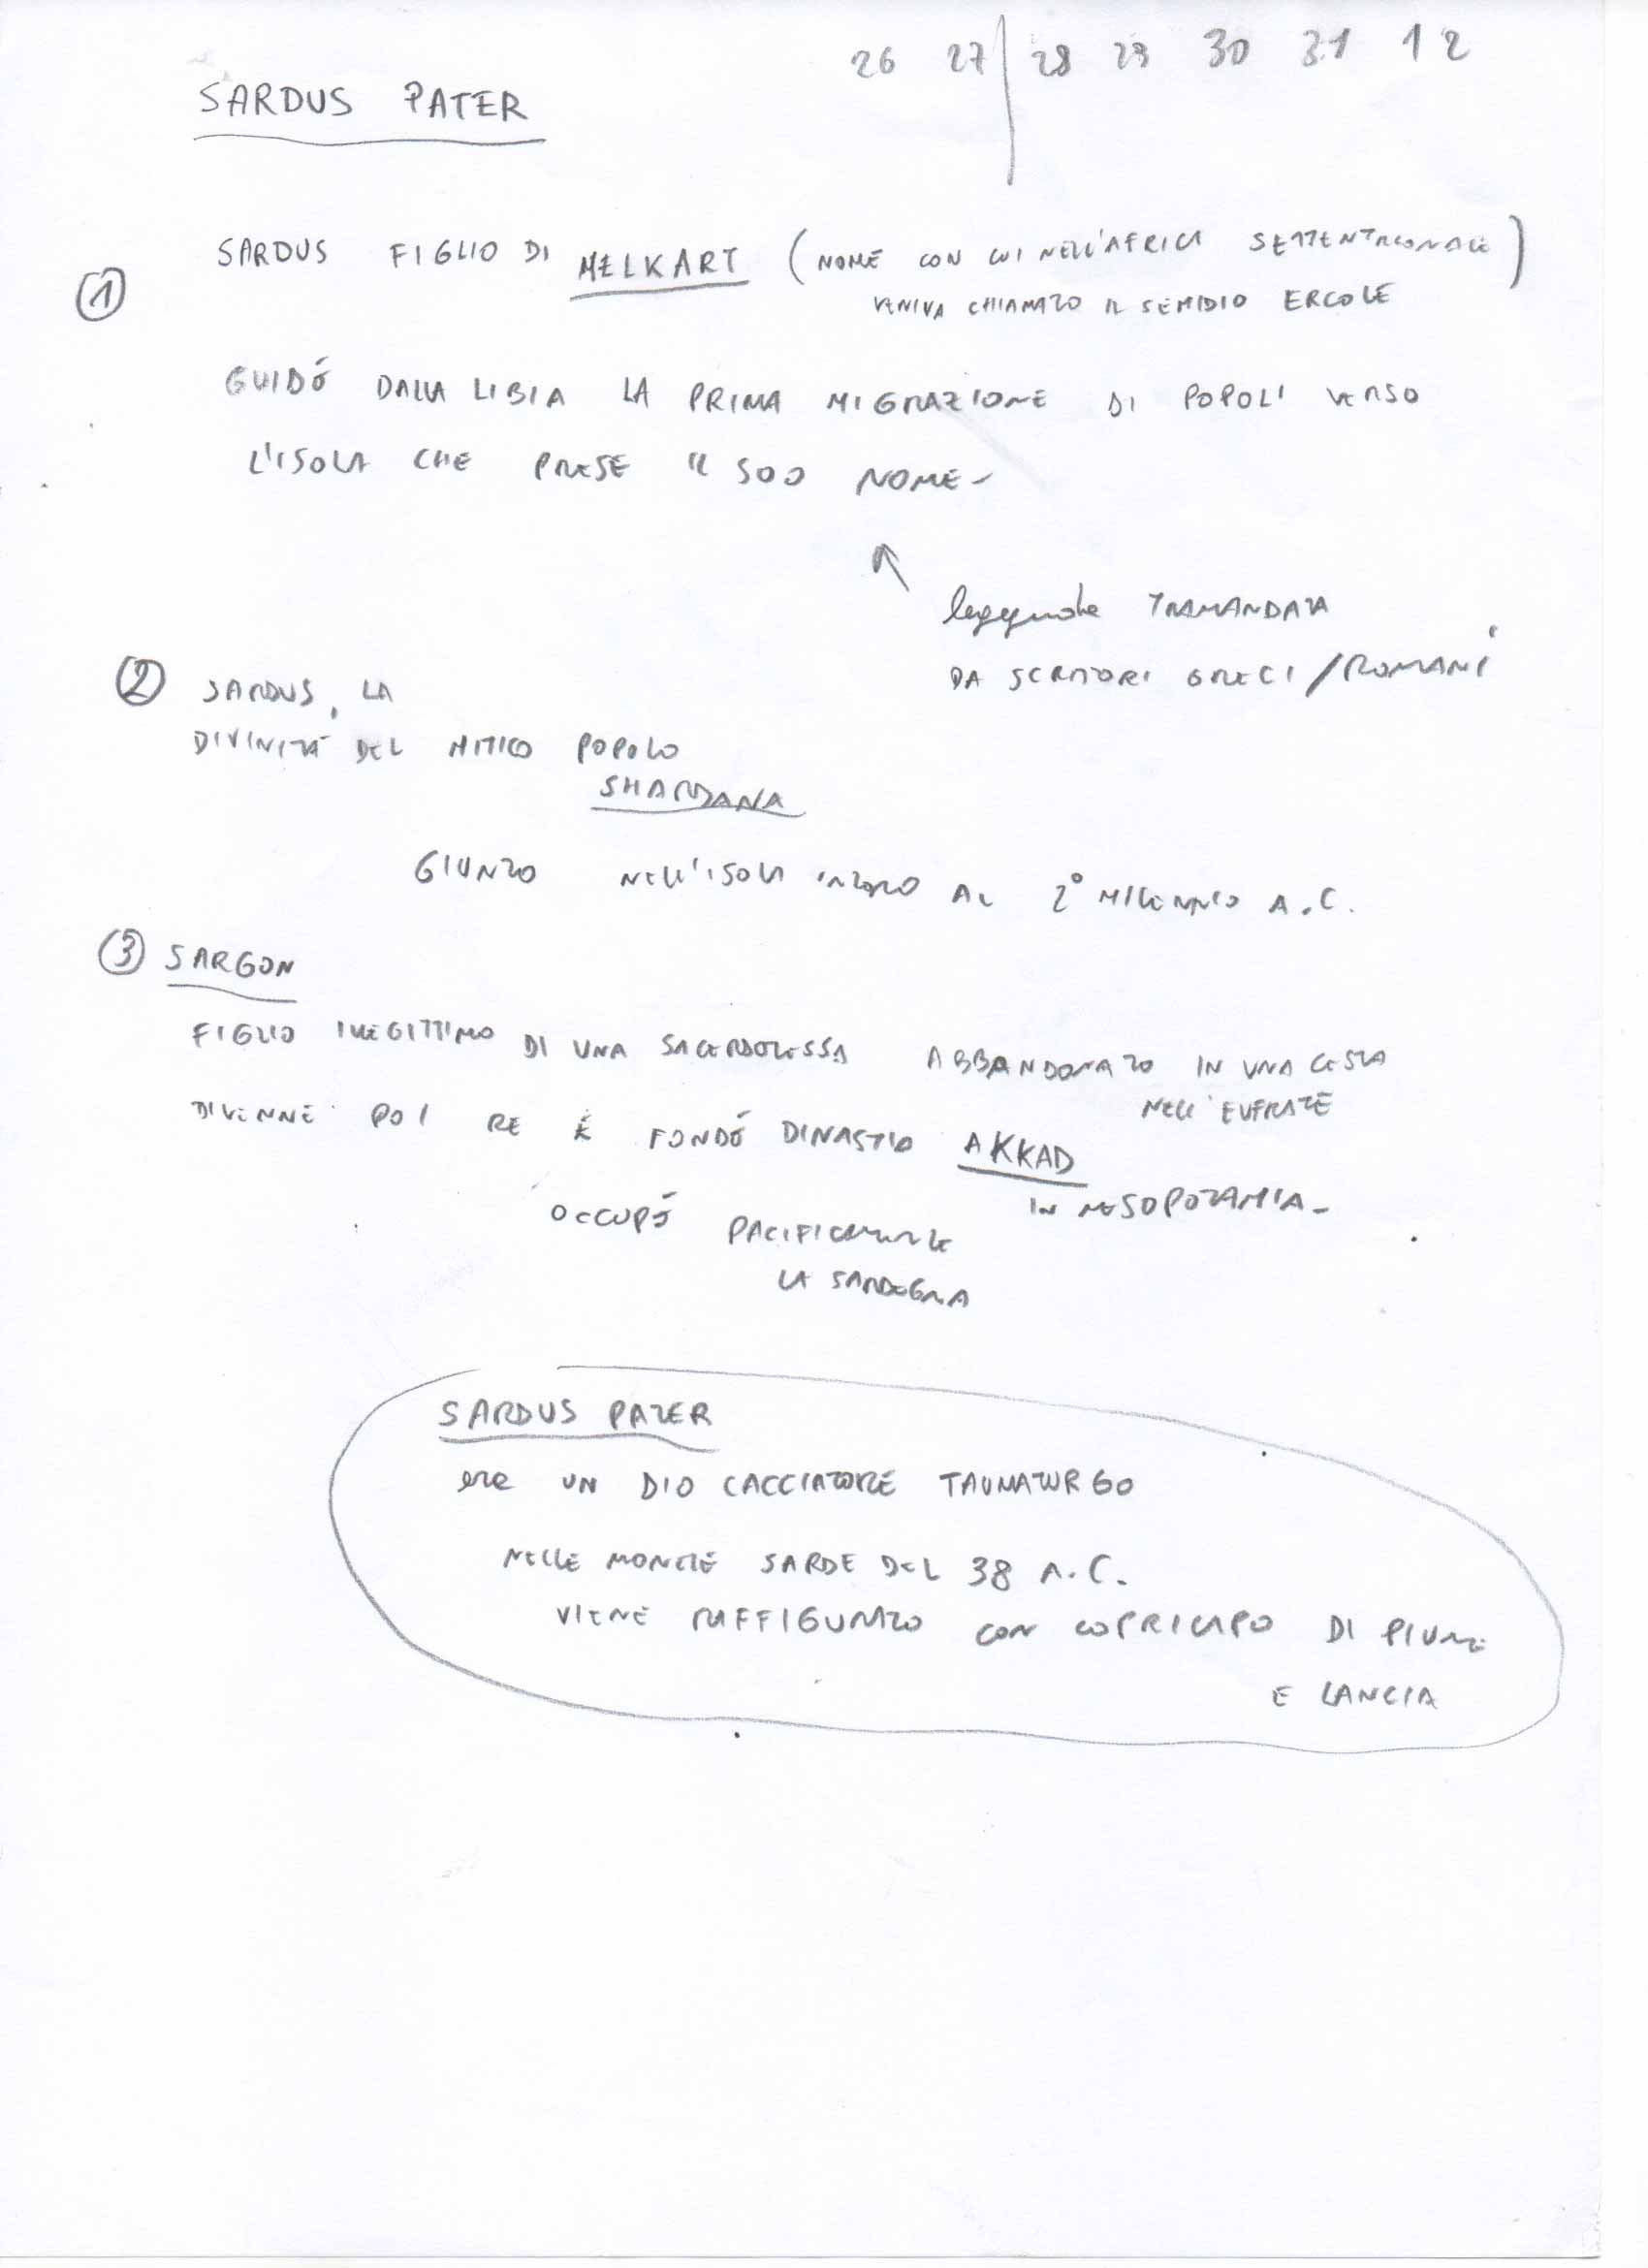 26 27 28 29 30 31 1 2
SARDUS PATER
1
SARDUS FIGLIO DI MELKART (NOME CON CUI NELL'AFRICA SETTENTRIONALE)
VENIVA CHIAMATO IL SEMIDIO ERCOLE
GUIDÓ DALLA LIBIA LA PRIMA MIGRAZIONE DI POPOLI VERSO
L'ISOLA CHE PRESE IL SUO NOME-
leggenda TRAMANDATA
DA SCRITTORI GRECI/ROMANI
2 SARDUS, LA
DIVINITÁ DEL MITICO POPOLO
SHARDANA
GIUNTO NELL'ISOLA INTORNO AL 2° MILLENNIO A.C.
3 SARGON
FIGLIO ILLEGITTIMO DI UNA SACERDOTESSA ABBANDONATO IN UNA CESTA
NELL'EUFRATE
DIVENNE POI RE E FONDÓ DINASTIA AKKAD
IN MESOPOTAMIA-
OCCUPÓ PACIFICAMENTE
LA SARDEGNA
SARDUS PATER
era UN DIO CACCIATORE TAUMATURGO
NELLE MONETE SARDE DEL 38 A.C.
VIENE RAFFIGURATO CON COPRICAPO DI PIUME
E LANCIA